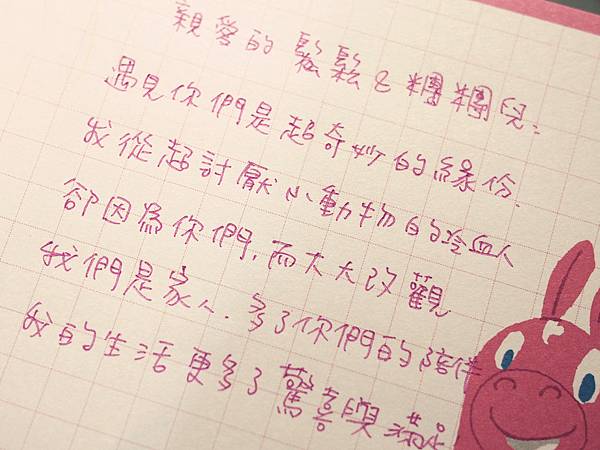 親愛的 鬆鬆&糰糰兒:
遇見你們是超奇妙的緣份.
我從超討厭小動物的冷血人
卻因為你們,而大大改觀
我們是家人.多了你們的陪伴
我的生活更多了驚喜與